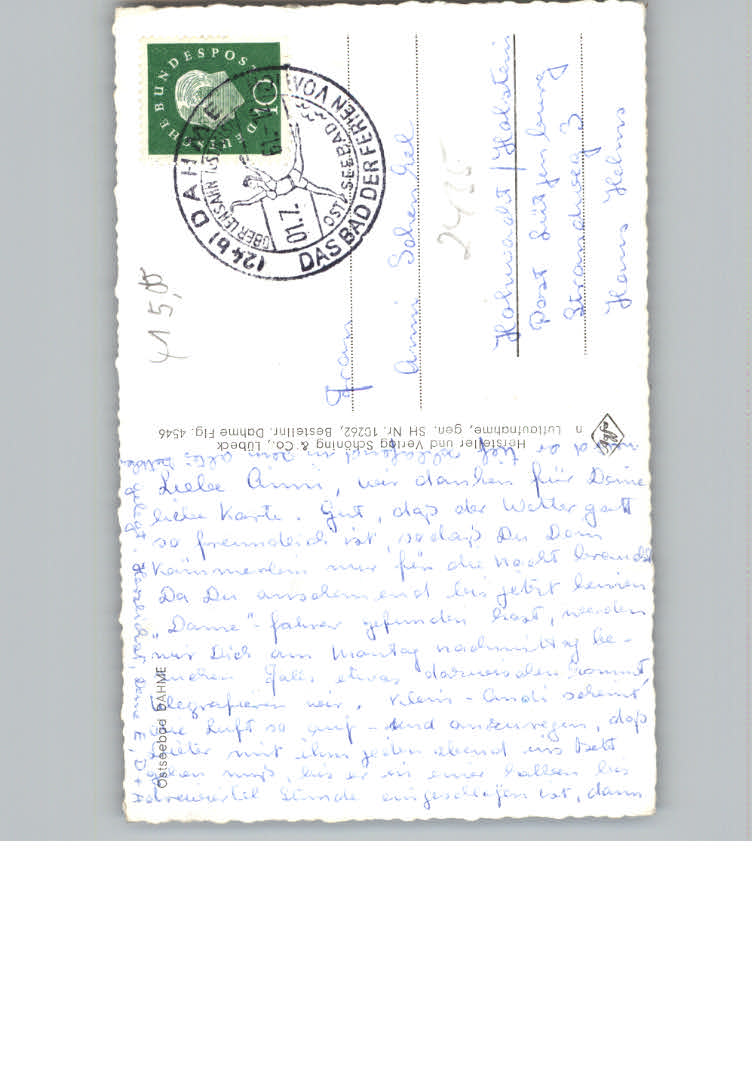 DEUTSCHE BUNDESPOST
10
(24b) DAHME
ÜBER LENSAHN
OSTSEEBAD
DAS BAD DER FERIEN VOM
01.7.
2485
415,00
Frau
Anni Schenkel
Hohwacht / Holstein
Post Lütjenburg
Strandweg 3
Haus Helms
Hersteller und Verlag Schöning & Co., Lübeck
Luftaufnahme, gen. SH Nr. 10262, Bestellnr. Dahme Flg. 4546
Ostseebad DAHME
Liebe Anni, wir danken für Deine
liebe Karte. Gut, daß der Wettergott
so freundlich ist, sodaß Du Dein
Kämmerlein nur für die Nacht brauchst
Da Du anscheinend bis jetzt keinen
"Dame"-fahrer gefunden hast, werden
wir Dich am Montag nachmittag be-
suchen. Falls etwas dazwischen kommt,
telegrafieren wir. Klein-Andi scheint
die Luft so auf- und anzuregen, daß
Dieter mit ihm jeden Abend ins Bett
gehen muß, bis er in einer halben bis
dreiviertel Stunde eingeschlafen ist, dann
wird er tief schlafend in sein
gelegt. Herzlichst, Deine E, D + A